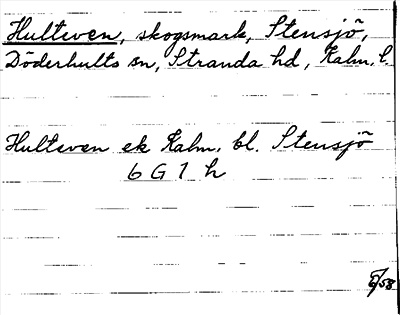 Hulteven, skogsmark, Stensjö,
Döderhults sn, Stranda hd, Kalm. l.
Hulteven ek Kalm. bl. Stensjö
6 G 1 h
6/58